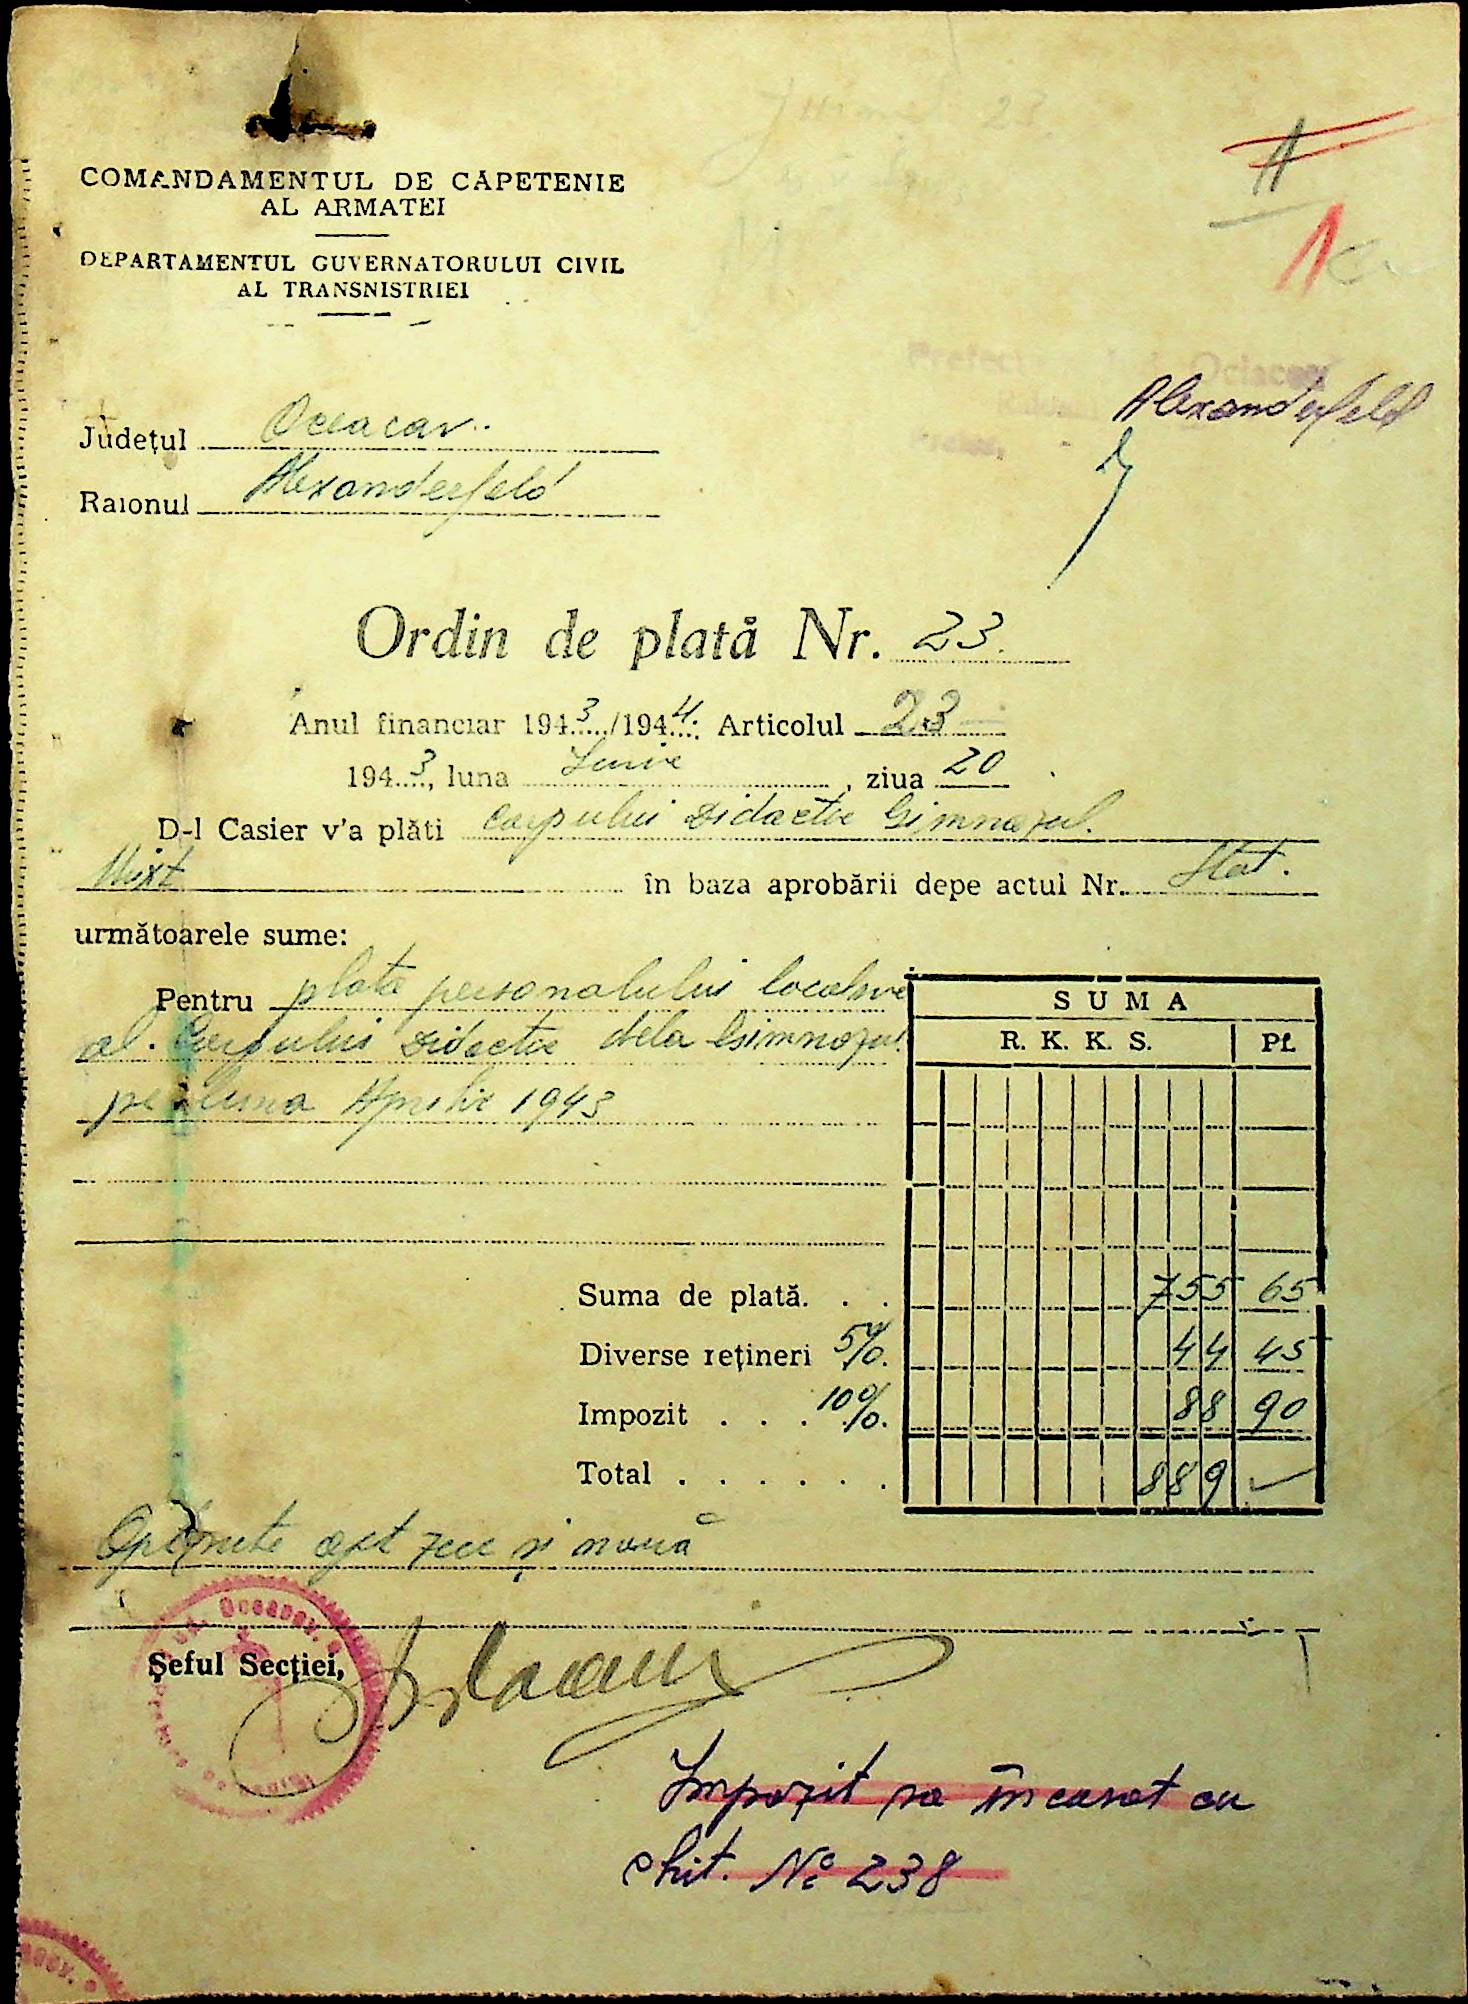 COMANDAMENTUL DE CAPETENIE
AL ARMATEI
DEPARTAMENTUL GUVERNATORULUI CIVIL
AL TRANSNISTRIEI
1
Alexanderfeld
Județul Oceacov.
Raionul Alexanderfeld
Ordin de plată Nr. 23.
Anul financiar 1943/1944: Articolul 23
1943, luna Iunie, ziua 20
D-l Casier v'a plăti Corpului Didactic Gimnazul.
Mixt în baza aprobării depe actul Nr. Stat.
următoarele sume:
Pentru plata personalului localnic
al. Corpului Didactic dela Gimnazul.
pe luna Aprilie 1943
SUMA
R. K. K. S. Pf.
Suma de plată. . . 755 65
Diverse rețineri 5%. 44 45
Impozit . . . 10%. 88 90
Total . . . . . . 889 —
Optsute opt zeci și nouă
Șeful Secției,
Impozit sa încasat cu
chit. No 238